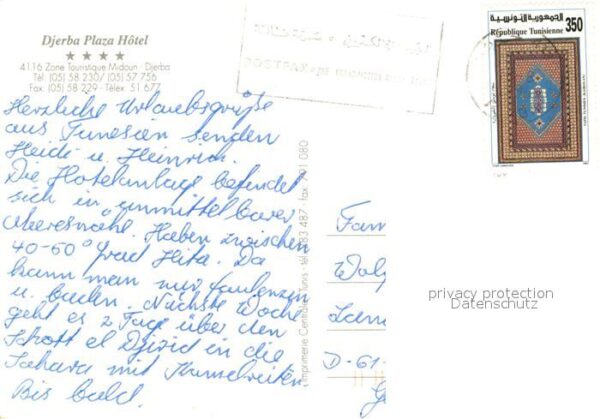 Djerba Plaza Hôtel
4116 Zone Touristique Midoun - Djerba
Tél: (05) 58 230/ (05) 57 756
Fax: (05) 58 229 - Télex: 51 677
الجمهورية التونسية
350
République Tunisienne
POSTFAX
Herzliche Urlaubsgrüße
aus Tunesien senden
Heidi u. Heinrich.
Die Hotelanlage befindet
sich in unmittelbarer
Meeresnähe. Haben zwischen
40-60° grad Hitze. Da
kann man nur faulenzen
u. baden. Nächste Woche
geht es 2 Tage über den
Schott el Djirid in die
Sahara mit Kamelreiten
Bis bald.
Imprimerie Centrale Tunis - Tél 783 487 - fax 080
Fam
D-61-
privacy protection
Datenschutz